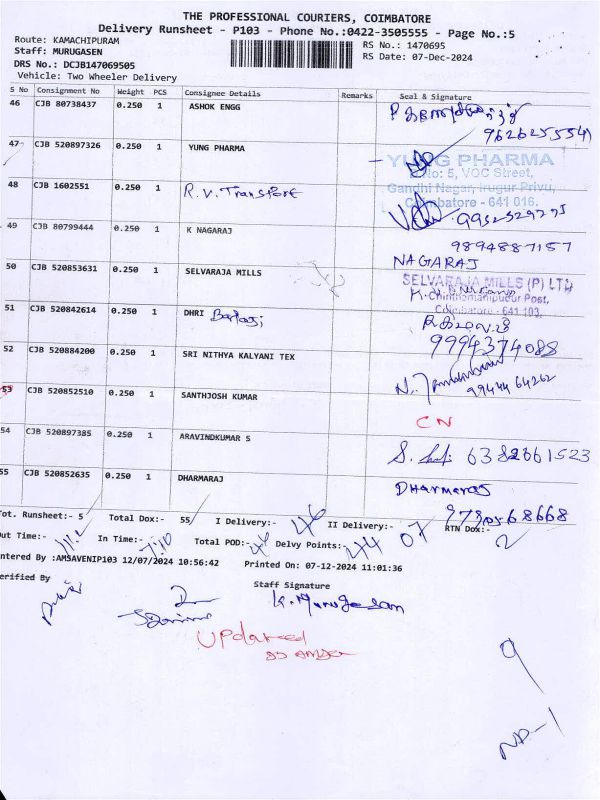 THE PROFESSIONAL COURIERS, COIMBATORE
Delivery Runsheet - P103 - Phone No.:0422-3505555 - Page No.:5
Route: KAMACHIPURAM RS No.: 1470695
Staff: MURUGASEN RS Date: 07-Dec-2024
DRS No.: DCJB147069505
Vehicle: Two Wheeler Delivery
S No Consignment No Weight PCS Consignee Details Remarks Seal & Signature
46 CJB 80738437 0.250 1 ASHOK ENGG
9626255541
47 CJB 520897326 0.250 1 YUNG PHARMA
YUNG PHARMA
No: 5, VOC Street,
Gandhi Nagar, Irugur Privu,
Coimbatore - 641 016.
48 CJB 1602551 0.250 1 R.V. Transport
9952329295
49 CJB 80799444 0.250 1 K NAGARAJ
9894887157
NAGARAJ
50 CJB 520853631 0.250 1 SELVARAJA MILLS
SELVARAJA MILLS (P) LTD
Chinthamanipudur Post,
Coimbatore - 641 103.
51 CJB 520842614 0.250 1 DHRI Balaji
9994374088
52 CJB 520884200 0.250 1 SRI NITHYA KALYANI TEX
99444 64262
53 CJB 520852510 0.250 1 SANTHJOSH KUMAR
CN
54 CJB 520897385 0.250 1 ARAVINDKUMAR S
6382661523
55 CJB 520852635 0.250 1 DHARMARAJ
DHARMARAJ
Tot. Runsheet:- 5 Total Dox:- 55 I Delivery:- 46 II Delivery:- 07 RTN Dox:- 2
Out Time:- 11.2 In Time:- 7:10 Total POD:- 46 Delvy Points:- 44
ntered By :AMSAVENIP103 12/07/2024 10:56:42 Printed On: 07-12-2024 11:01:36
erified By Staff Signature
K. Murugesan
Updated
9
NP-1